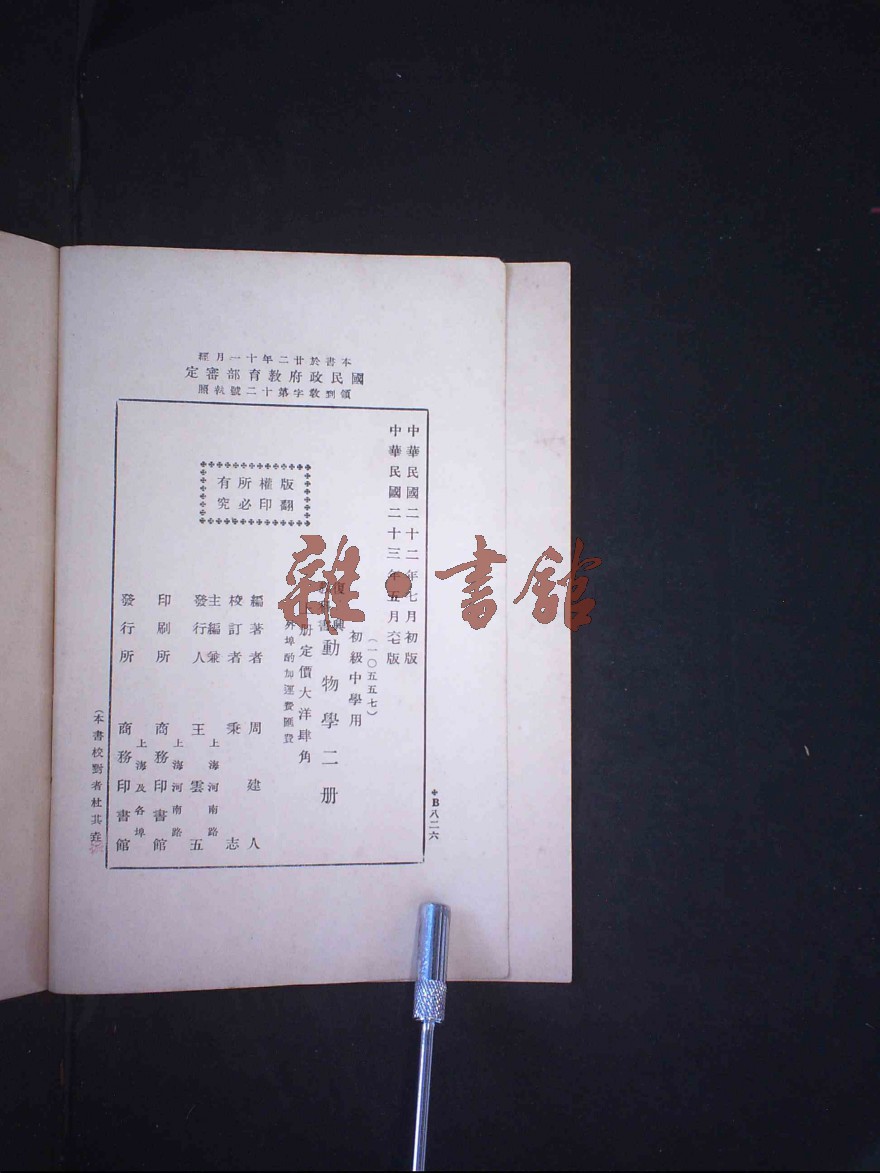 本書於廿二年十一月經
國民政府教育部審定
領到教字第十二號執照
中華民國二十二年七月初版
中華民國二十三年五月六版
(一〇五五七)
初級中學用
復興
動物學二册
册定價大洋肆角
外埠酌加運費匯費
編著者 周建人
校訂者 秉志
主編兼發行人 王雲五
上海河南路
印刷所 商務印書館
上海河南路
發行所 商務印書館
上海及各埠
版權所有
翻印必究
(本書校對者杜其垚)
B八二六
雜·書館